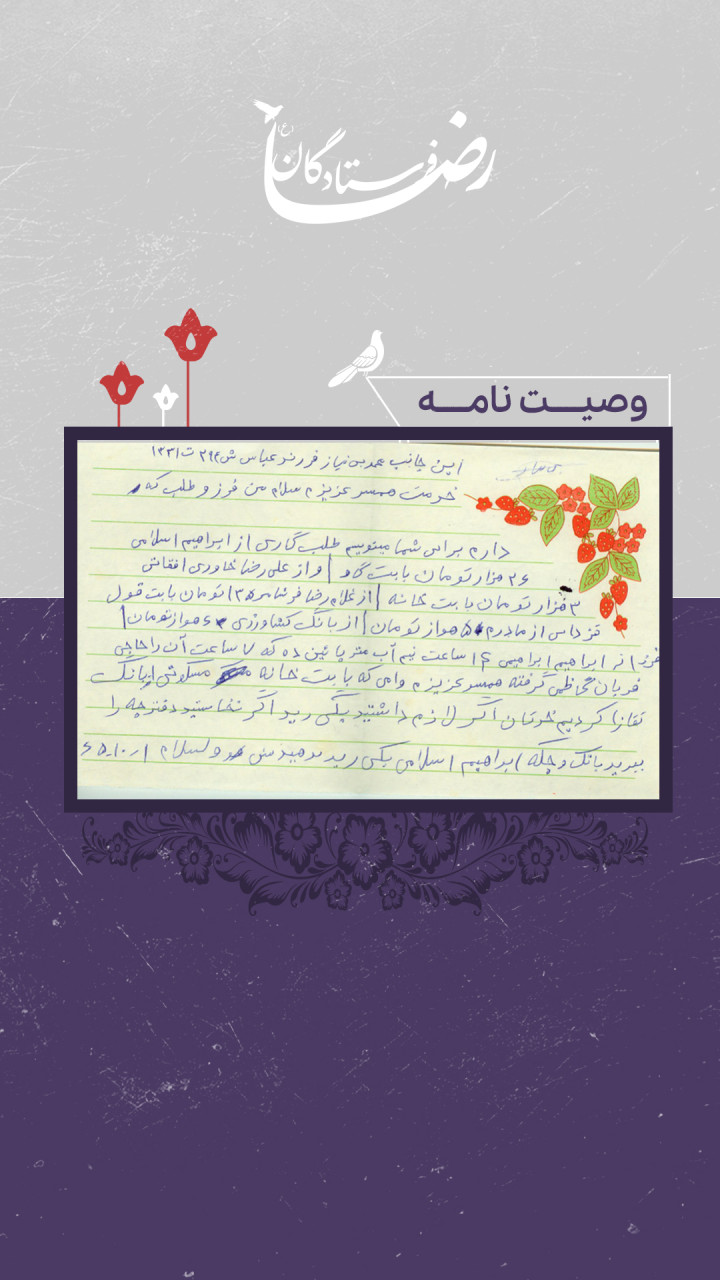 رضا
فرستادگان
(ع)
وصیت نامه
این جانب محمد بی نیاز فرزند عباس ش ۳۹۴ ت ۱۳۳۱
خومت همسر عزیزم سلام من قرز و طلب که
دارم برای شما مینویسم طلب گاری از ابراهیم اسلامی
۲۶ هزار تومان بابت گاو و از علی رضا خاوری افغانی
۳ هزار تومان بابت خانه از غلام رضا ۱۳۵ تومان بابت قول
قرداس از مادرم ۵ هوازتومان از بانگ کشاورزی ۶ هوازتومان
از ابراهیم ابراهیمی ۱۶ ساعت نیم آب متر پائین ده که ۷ ساعت آن را حاجی
قربان کاظمی گرفته همسر عزیزم وامی که بابت خانه مسکونی ازبانگ
تقازا کردیم خوتان اگر لازم داشتید بگیرید اگر نخاستید دفترچه را
ببرید بانگ و چکه ابراهیم اسلامی بگیرید بدهیدش والسلام